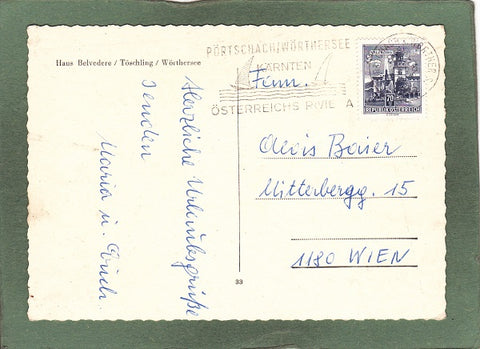 Haus Belvedere / Töschling / Wörthersee
Herzliche Urlaubsgrüße
senden
Maria u. Erich.
PÖRTSCHACH/WÖRTHERSEE
KÄRNTEN
ÖSTERREICHS RIVIERA
REPUBLIK ÖSTERREICH
Fam.
Alois Baier
Mitterbergg. 15
1180 WIEN
33